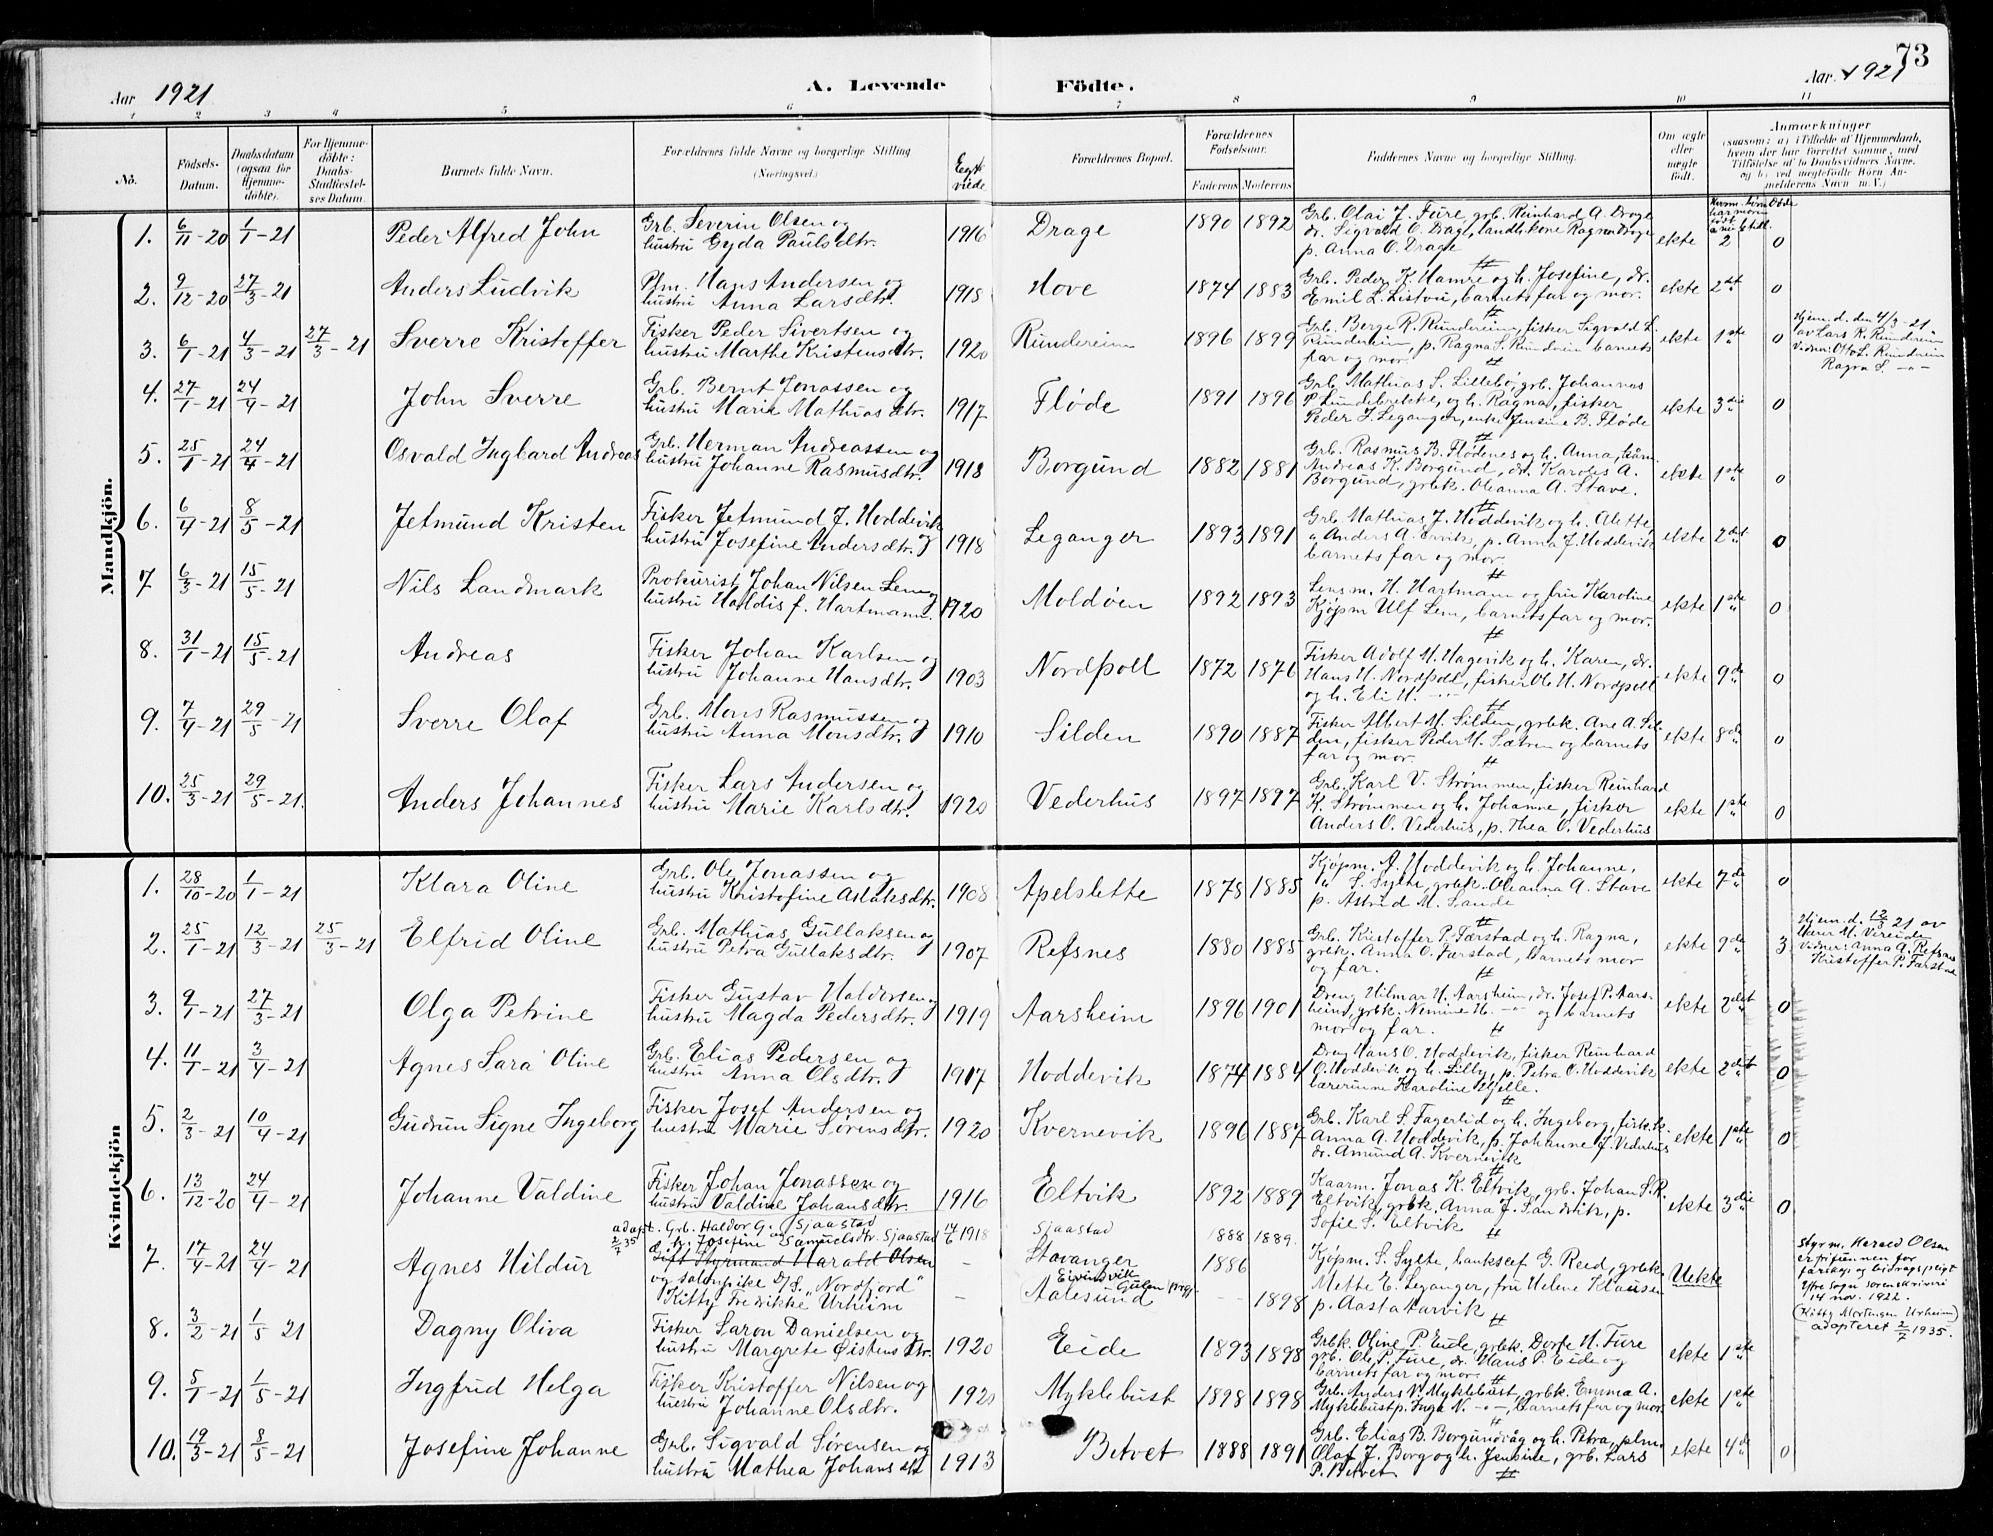 73
Aar 1921 A. Levende Födte. Aar 1921
1 2 3 4 5 6 7 8 9 10 11
No. Födsels-Datum. Daabsdatum (ogsaa for Hjemmedöbte). For Hjemmedöbte: Daabs-Stadfæstelses Datum. Barnets fulde Navn. Forældrenes fulde Navne og borgerlige Stilling (Næringsvei.) Egteviede Forældrenes Bopæl. Forældrenes Födselsaar. Faderens Moderens Faddernes Navne og borgerlige Stilling. Om ægte eller uægte födt. Anmærkninger (saasom: a) i Tilfælde af Hjemmedaab, hvem der har forrettet samme, med Tilföielse af to Daabsvidners Navne. og b) ved uægtefödte Börn Anmelderens Navn m. V.)
Mandkjön.
1. 6/11-20 1/1-21 Peder Alfred John Grb. Severin Olsen og
hustru Gyda Paulsdtr. 1916 Drage 1890 1892 Grb. Olai J. Fure, grb. Reinhard A. Drage
dr. Sigvald O. Drage, landh.kone Ragna Drage
p. Anna O. Drage ekte 2 0
2. 9/12-20 27/3-21 Anders Ludvik Plm. Hans Andersen og
hustru Anna Larsdtr. 1918 Hove 1874 1883 Grb. Peder K. Hamre og h. Josefine, dr.
Emil L. Listou, barnets far og mor. ekte 2det 0
3. 6/1-21 4/3-21 27/3-21 Sverre Kristoffer Fisker Peder Sivertsen og
hustru Marthe Kristensdtr. 1920 Rundereim 1896 1899 Grb. Berge R. Rundereim, fisker Sigvald L.
Rundereim, p. Ragna S. Rundreim barnets
far og mor. ekte 1ste 0 Hjem.d. den 4/3-21
av Lars R. Rundereim
Vidner: Otto L. Rundreim
Ragna S. -"-
4. 27/1-21 24/4-21 John Sverre Grb. Bernt Jonassen og
hustru Marie Mathiasdtr. 1917 Fløde 1891 1896 Grb. Mathias S. Lillebø, grb. Johannes
P. Lundebrekke, og h. Ragna, fisker
Peder J. Leganger, enke Jensine B. Fløde ekte 3die 0
5. 25/1-21 24/4-21 Osvald Ingbard Andreas Grb. Herman Andreassen og
hustru Johanne Rasmusdtr. 1918 Borgund 1882 1881 Grb. Rasmus B. Flødenes og h. Anna,
Andreas K. Borgund, dr. Karoles A.
Borgund, grbk. Oleanna A. Stave. ekte 1ste 0
6. 6/4-21 8/5-21 Jetmund Kristen Fisker Jetmund J. Hoddevik
hustru Josefine Andersdtr. og 1918 Leganger 1893 1891 Grb. Mathias J. Hoddevik og h. Alette,
" Anders A. Ervik, p. Anna J. Hoddevik
barnets far og mor. ekte 2det 0
7 6/3-21 15/5-21 Nils Landmark Prokurist Johan Nilsen Lem og
hustru Haldis f. Hartmann. 1920 Moldøen 1892 1893 Lensm. H. Hartmann og fru Karoline
Kjøpm Ulf Lem, barnets far og mor. ekte 1ste 0
8. 31/1-21 15/5-21 Andreas Fisker Johan Karlsen og
hustru Johanne Hansdtr. 1903 Nordpoll 1872 1876 Fisker Adolf H. Hagevik og h. Karen, dr.
Hans H. Nordpoll, fisker Ole H. Nordpoll
og h. Eli H. -"- ekte 9de 0
9. 7/4-21 29/5-21 Sverre Olaf Grb. Mons Rasmussen og
hustru Anna Monsdtr. 1910 Silden 1890 1887 Fisker Albert M. Silden, grbk. Ane A. Sil-
den, fisker Peder M. Sætren og barnets
far og mor. ekte 8de 0
10. 25/3-21 29/5-21. Anders Johannes Fisker Lars Andersen og
hustru Marie Karlsdtr. 1920 Vederhus 1897 1897 Grb. Karl V. Strømmen, fisker Reinhard
K. Strømmen og h. Johanne, fisker
Anders O. Vederhus, p. Thea O. Vederhus ekte 1ste 0
Kvindekjön
1. 28/10-20 1/1-21 Klara Oline Grb. Ole Jonassen og
hustru Kristofine Aslaksdtr. 1908 Apelslette 1878 1885 Kjøpm. A. Hoddevik og h. Johanne,
" S. Sylte, grbk. Oleanna A. Stave
p. Astrid M. Sande ekte 7de 0
2. 25/1-21 12/3-21 25/3-21 Elfrid Oline Grb. Mathias Gullaksen og
hustru Petra Gullaksdtr. 1907 Refsnes 1880 1885 Grb. Kristoffer P. Færstad og h. Ragna,
grbk. Anna O. Færstad, barnets mor
og far. ekte 9de 3 Hjem.d. 12/3 21 av
M. Vereide
Vidner: Anna A. Refsnes
Kristoffer P. Færstad
3. 9/1-21 27/3-21 Olga Petrine Fisker Gustav Haldorsen og
hustru Magda Pedersdtr. 1919 Aarsheim 1896 1901 Dreng Hilmar H. Aarsheim, dr. Josef P. Aars-
heim, grbk. Nemine H. -"- og barnets
mor og far. ekte 2det 0
4. 11/1-21 3/4-21 Agnes Sara Oline Grb. Elias Pedersen og
hustru Anna Olsdtr. 1917 Hoddevik 1874 1884 Dreng Hans O. Hoddevik, fisker Reinhard
O. Hoddevik og h. Lilly, p. Petra O. Hoddevik
lærerinne Karoline Hjelle. ekte 2det 0
5. 2/3-21 10/4-21 Gudrun Signe Ingeborg Fisker Josef Andersen og
hustru Marie Sørensdtr. 1920 Kvernevik 1896 1887 Grb. Karl S. Fagerlid og h. Ingeborg, fisk.k.
Anna A. Hoddevik, p. Johanne J. Vederhus
dr. Amund A. Kvernevik ekte 1ste 0
6. 13/12-20 24/4-21 Johanne Valdine Fisker Johan Jonassen og
hustru Valdine Johansdtr. 1916 Eltvik 1892 1889 Kaarm. Jonas K. Eltvik, grb. Johan S. R.
Eltvik, grbk. Anna J. Sandvik, p.
Sofie S. Eltvik ekte 3die 0
7. 17/4-21 24/4-21 Agnes Hildur adopt. 2/7 35 Grb. Haldor G. Sjaastad
og h. Josefine Samuelsdtr. Sjaastad 14/6 1918 Sjaastad 1888 1889.
Gift Styrmand Harald Olsen - Stavanger 1886
og salonpike D/S. „Nordfjord"
Kitty Fredrikke Urheim - Eivindvik Gulen prgj. Aalesund -- 1898 Kjøpm. S. Sylte, banksef G. Reed, grbk.
Mette E. Leganger, fru Helene Klausen
p. Aasta Aarvik Uekte Styrm. Harald Olsen
er pifunnen for
farskap og bidragspligt
efter Sogn sorenskriveri
14 nov. 1922.
(Kitty Mortensen Urheim)
adopteret 2/7 1935.
8. 3/2-21 1/5 21 Dagny Oliva Fisker Saron Danielsen og
hustru Margrete Øistensdtr. 1920 Eide 1893 1898 Grbk. Oline P. Eide, grbk. Dorte H. Fure
grb. Ole P. Fure, dr. Hans P. Eide og
barnets far og mor. ekte 1ste
9. 5/1-21 1/5-21 Ingfrid Helga Fisker Kristoffer Nilsen og
hustru Johanne Olsdtr. 1920 Myklebust 1898 1898 Grb. Anders V. Myklebust, grbk. Emma A.
Myklebust p. Inga N. -"-, barnets far og mor. ekte 1ste
10. 19/3-21 8/5-21 Josefine Johanne Grb. Sigvald Sørensen og
hustru Mathea Johansdtr 1913 Betvet 1888 1891 Grb. Elias B. Borgundvåg og h. Petra, plm.
Olaf J. Borg og h. Jensine, grb. Lars
P. Betvet ekte 4de 0